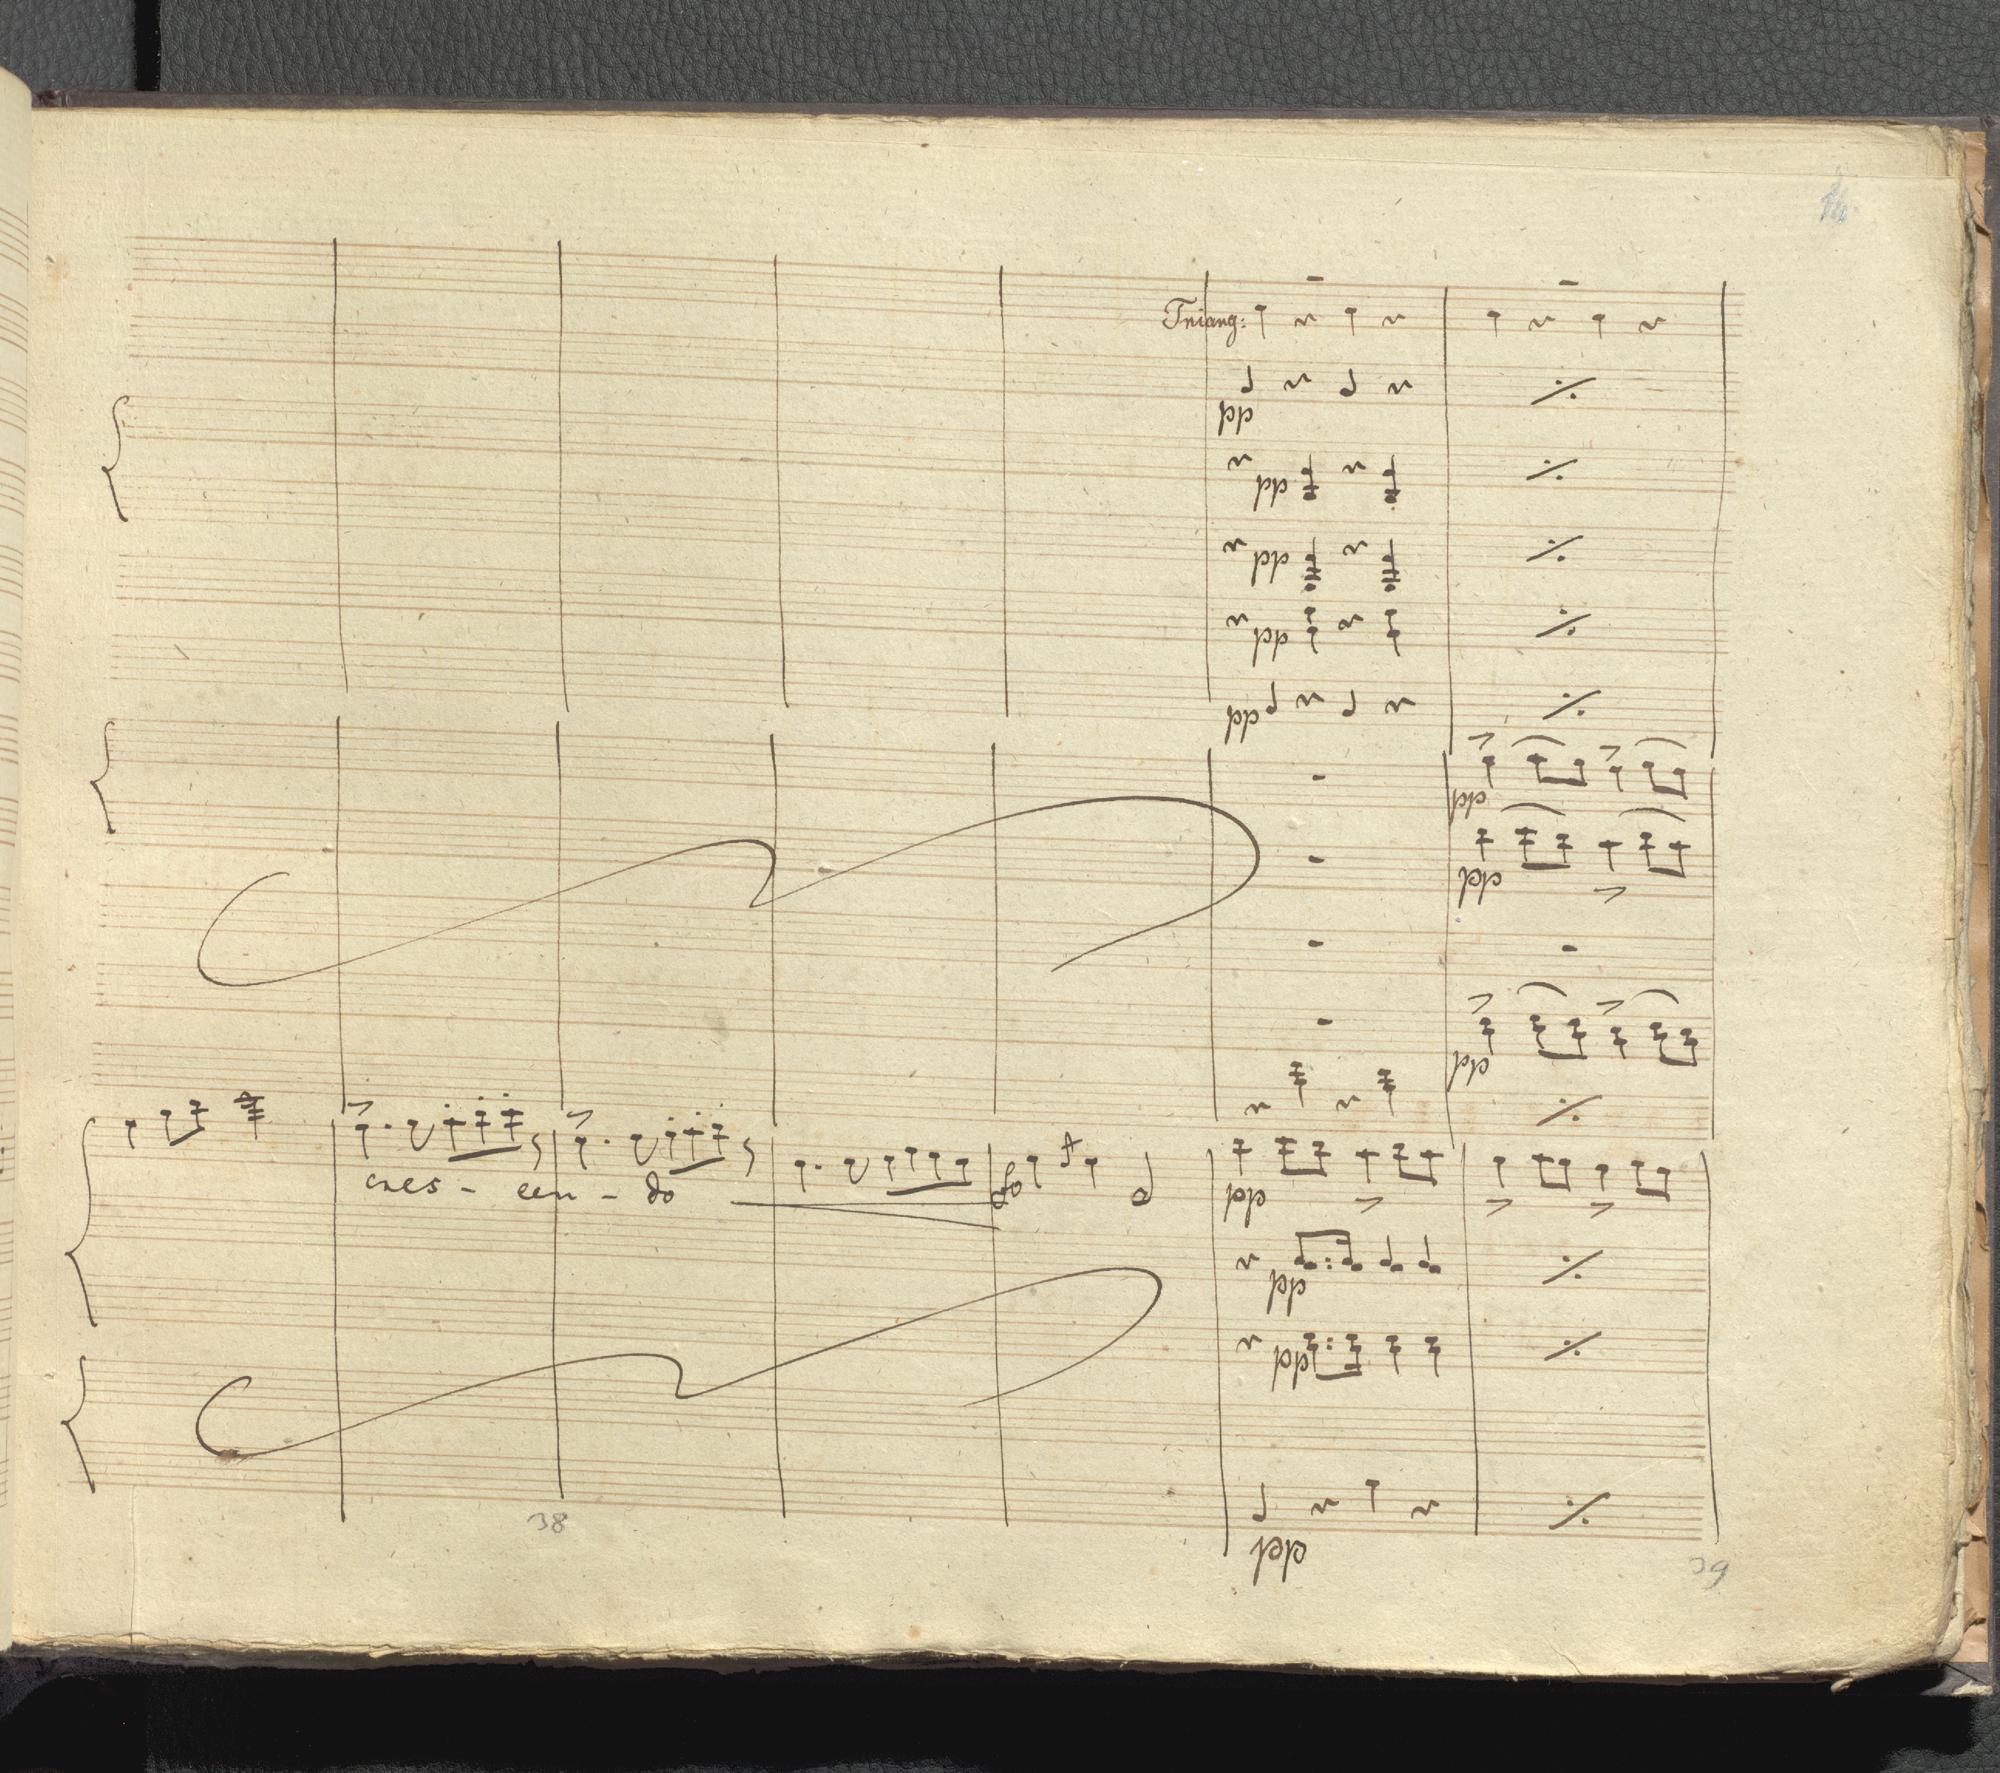 Triang:
pp
pp
pp
pp
pp
pp
pp
pp
cres - cen - do
pp
pp
pp
38
pp
39